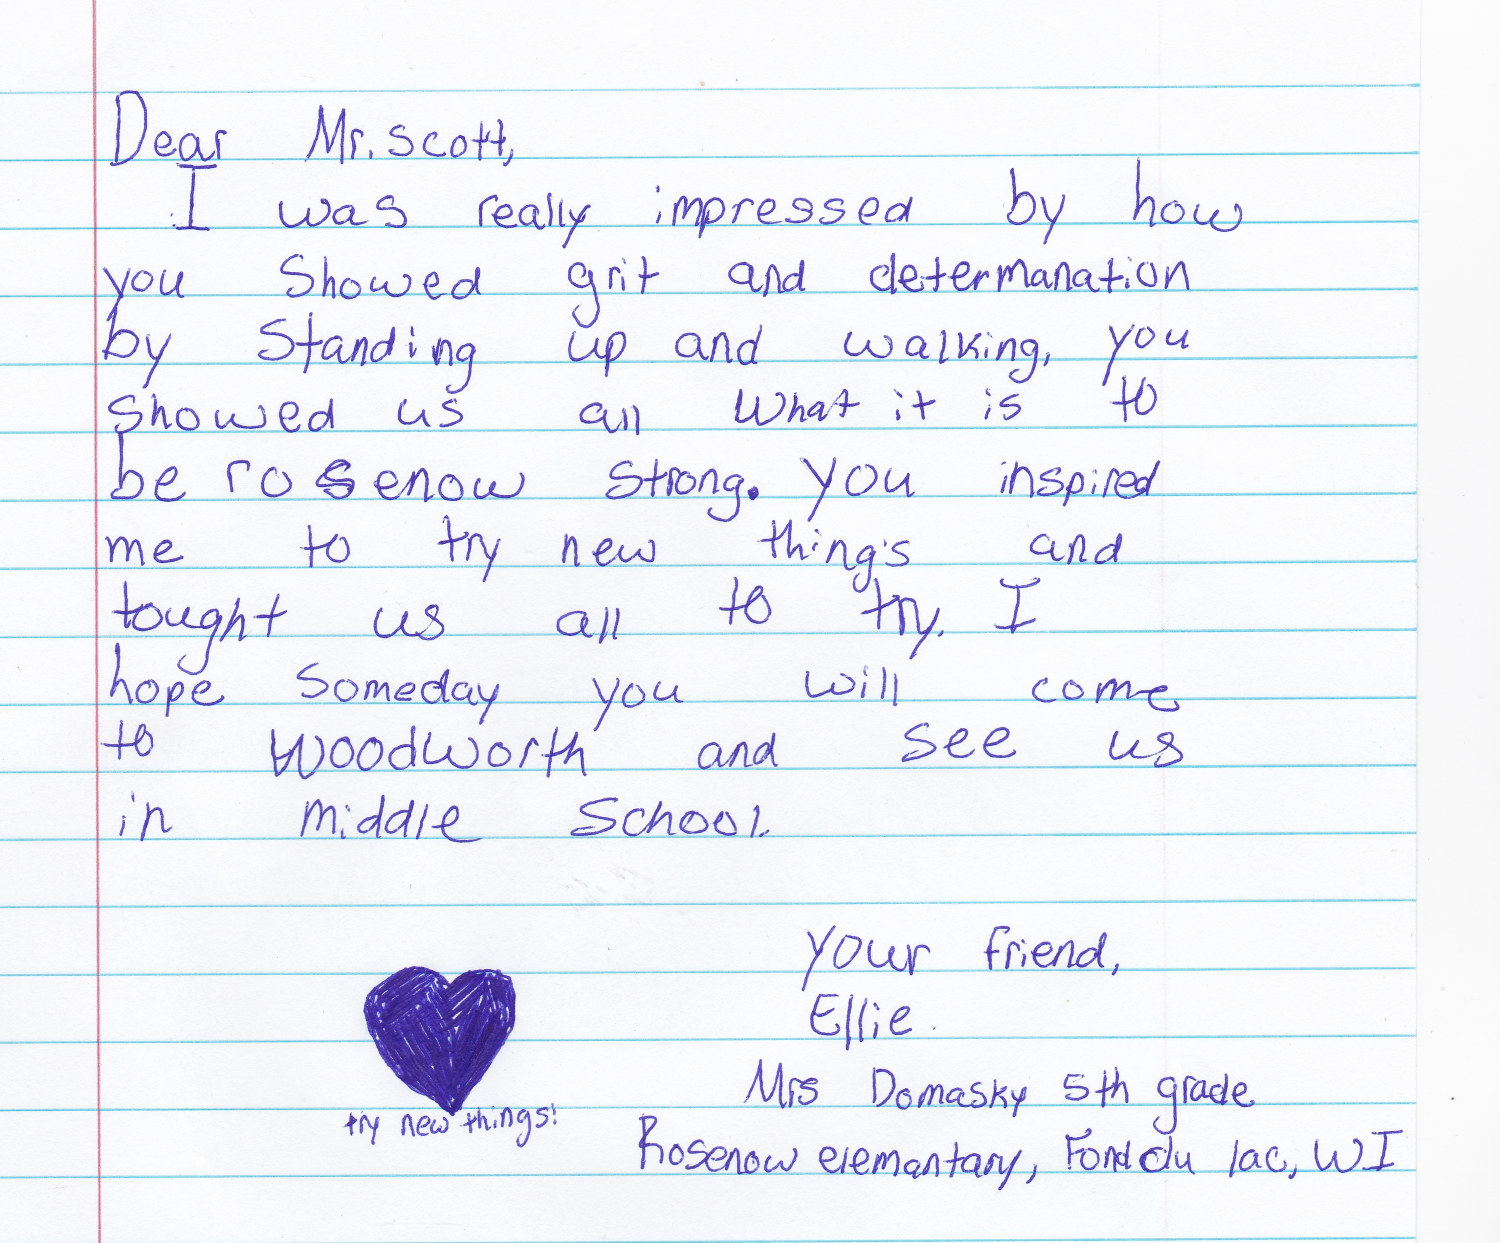 Dear Mr. Scott,
I was really impressed by how
you showed grit and determanation
by standing up and walking, you
showed us all what it is to
be rosenow strong. you inspired
me to try new things and
tought us all to try. I
hope someday you will come
to woodworth and see us
in middle school.
your friend,
Ellie
Mrs Domasky 5th grade
try new things!
Rosenow elemantary, Fond du lac, WI